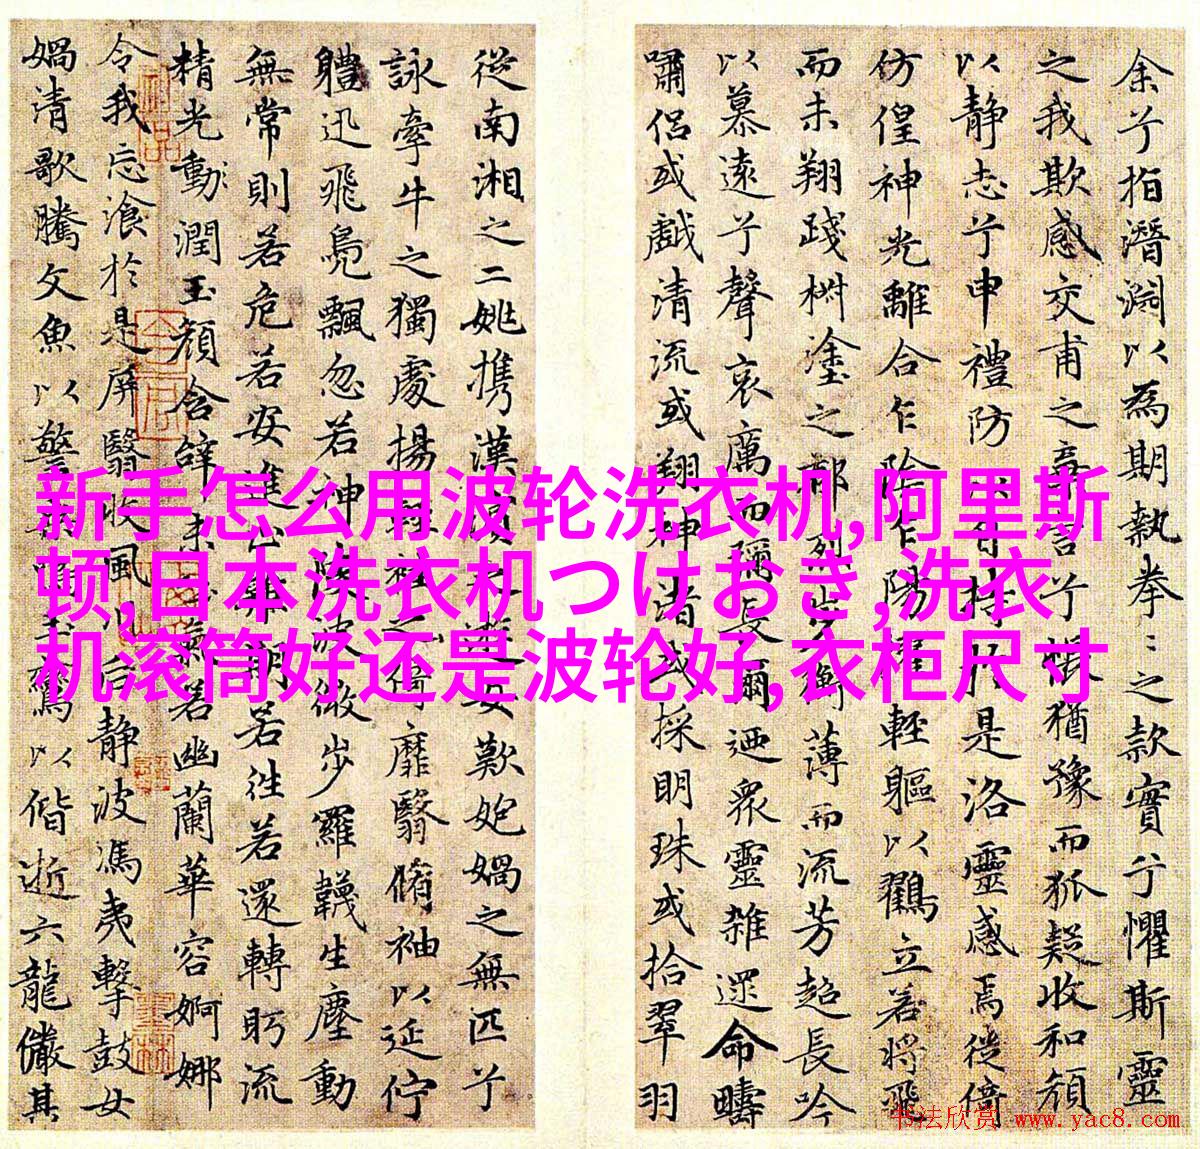 余兮指潛淵以為期執拳〻之款實兮懼斯靈
之我欺感交甫之棄言兮悵猶豫而狐疑收和顏
以静志兮申禮防以自持於是洛靈感焉徙倚
仿偟神光離合乍陰乍陽擢輕軀以鶴立若將飛
而未翔踐椒塗之郁烈步蘅薄而流芳超長吟
以慕遠兮聲哀厲而彌長爾迺衆靈雜遝命疇
嘯侣或戲清流或翔神渚或採明珠或拾翠羽
從南湘之二姚携漢濱之遊女歎匏媧之無匹兮
詠牽牛之獨處揚輕袿之倚靡翳脩袖以延佇
體迅飛鳧飄忽若神陵波微步羅韈生塵動
無常則若危若安進止難期若往若還轉眄流
精光動潤玉顔含辭未吐氣若幽蘭華容婀娜
令我忘飡於是屏翳收風川后静波馮夷擊鼓女
媧清歌騰文魚以警乘鳴玉鸞以偕逝六龍儼其
新手怎么用波轮洗衣机,阿里斯
顿,日本洗衣机つけおき,洗衣
机滚筒好还是波轮好,衣柜尺寸
书法欣赏 www.yac8.com